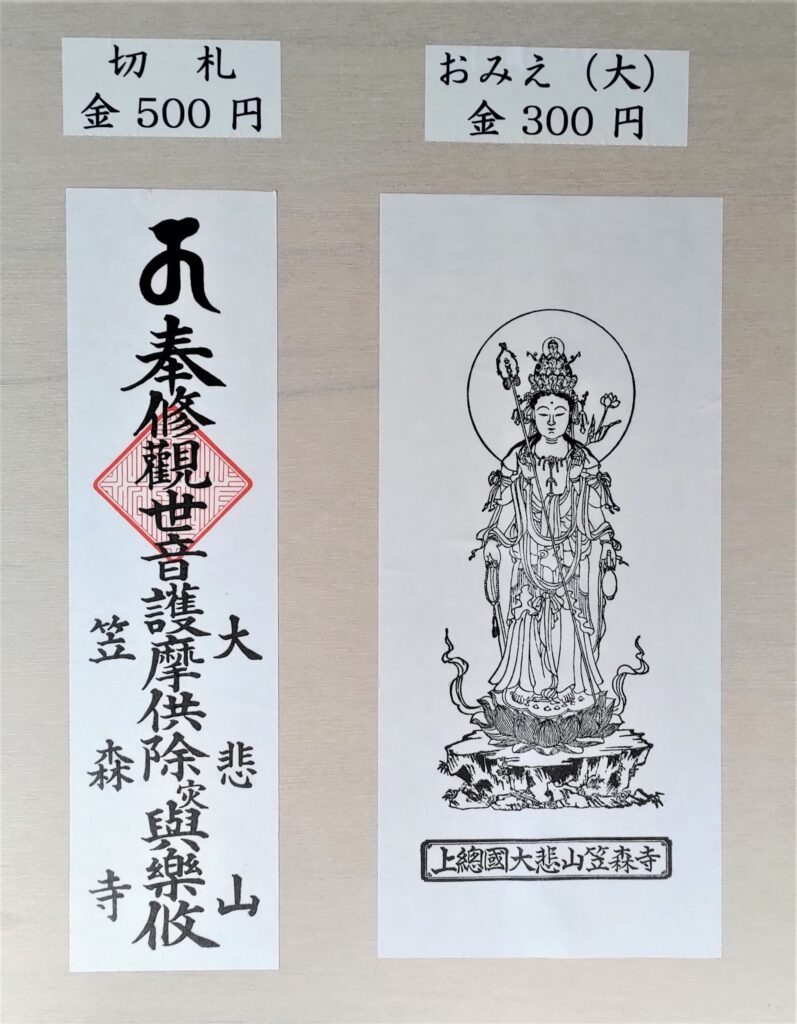 切 札
金 500 円
おみえ（大）
金 300 円
奉修觀世音護摩供除災與樂攸
大悲山
笠森寺
上總國大悲山笠森寺